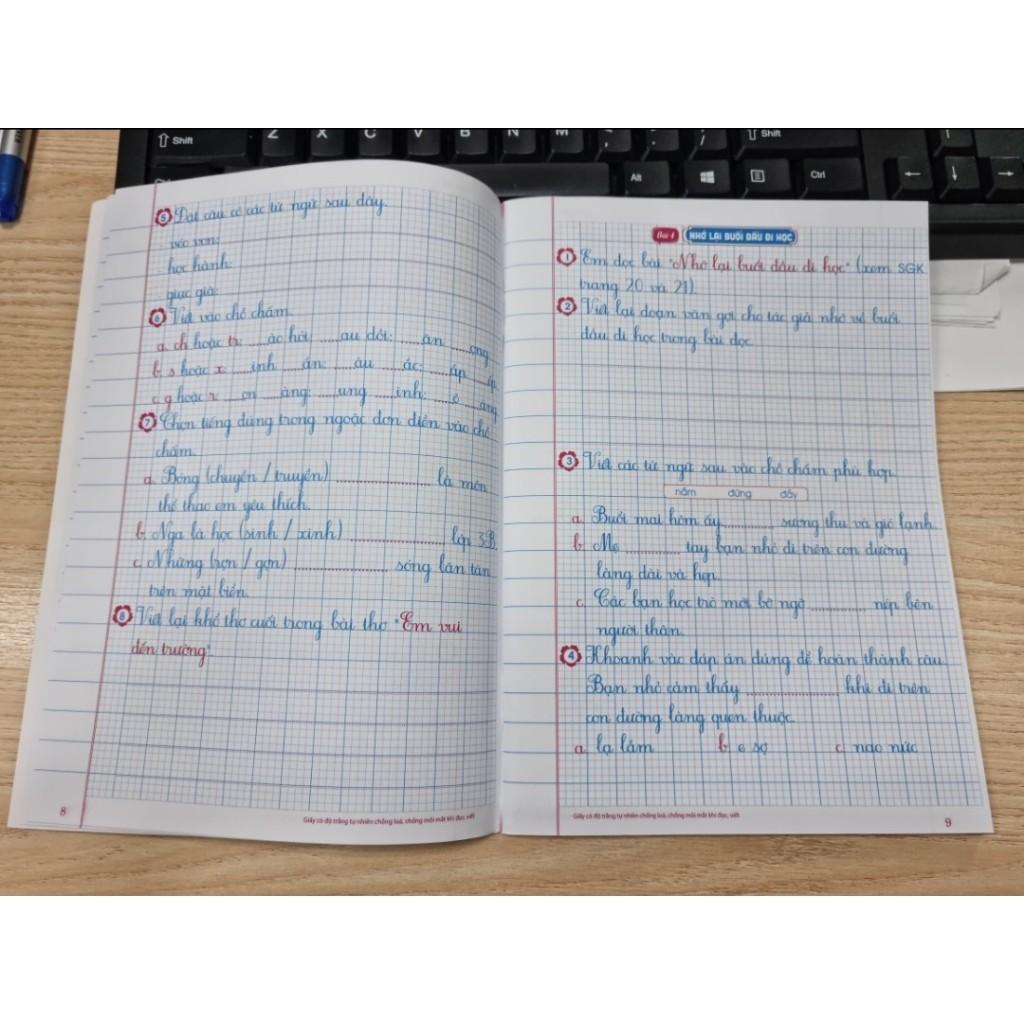 Shift
Z X C V B N M
Shift
Ctrl
Alt
Ctrl
5 Đặt câu có các từ ngữ sau đây.
véo von:
học hành:
giục giã:
6 Viết vào chỗ chấm.
a. ch hoặc tr: ....ào hỏi; ....au dồi; ....àn ....ong
b. s hoặc x: ....inh ....ắn; ....âu ....ác; ....ắp ....ếp
c. g hoặc r: ....on ....àng; ....ung ....inh; ....õ ....àng
7 Chọn tiếng đúng trong ngoặc đơn điền vào chỗ
chấm.
a. Bóng (chuyền / truyền) .................... là môn
thể thao em yêu thích.
b. Nga là học (sinh / xinh) .................... lớp 3B.
c. Những (rợn / gợn) .................... sóng lăn tăn
trên mặt biển.
8 Viết lại khổ thơ cuối trong bài thơ "Em vui
đến trường".
8
Giấy có độ trắng tự nhiên chống loá, chống mỏi mắt khi đọc, viết
Bài 4 NHỚ LẠI BUỔI ĐẦU ĐI HỌC
1 Em đọc bài "Nhớ lại buổi đầu đi học" (xem SGK
trang 20 và 21).
2 Viết lại đoạn văn gợi cho tác giả nhớ về buổi
đầu đi học trong bài đọc.
3 Viết các từ ngữ sau vào chỗ chấm phù hợp.
nắm đứng đầy
a. Buổi mai hôm ấy ............ sương thu và gió lạnh.
b. Mẹ ............ tay bạn nhỏ đi trên con đường
làng dài và hẹp.
c. Các bạn học trò mới bỡ ngỡ ............ nép bên
người thân.
4 Khoanh vào đáp án đúng để hoàn thành câu.
Bạn nhỏ cảm thấy .................... khi đi trên
con đường làng quen thuộc.
a. lạ lắm b. e sợ c. nao nức
Giấy có độ trắng tự nhiên chống loá, chống mỏi mắt khi đọc, viết
9